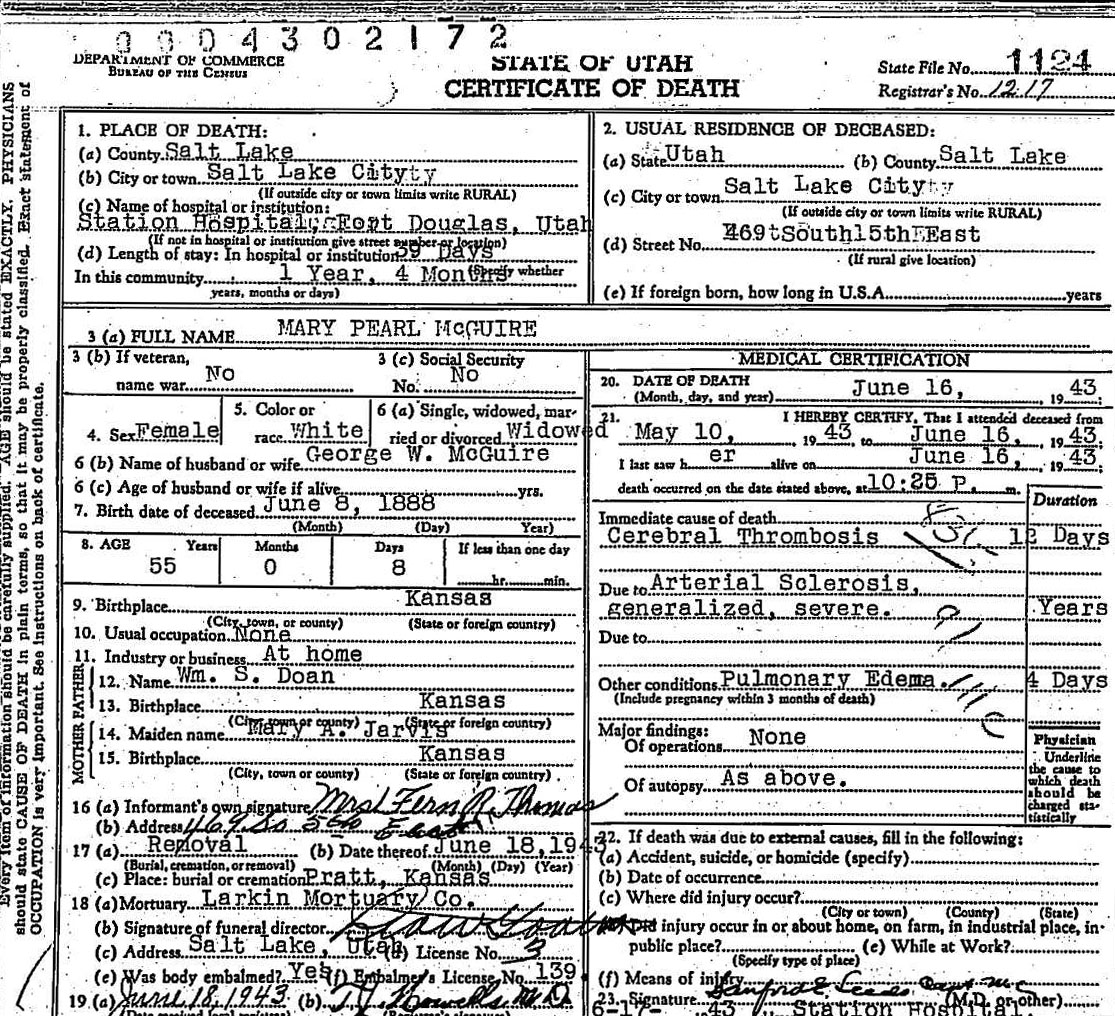 0004302172
DEPARTMENT OF COMMERCE
BUREAU OF THE CENSUS
STATE OF UTAH
CERTIFICATE OF DEATH
State File No. 1124
Registrar's No. 1217
Every item of information should be carefully supplied. AGE should be stated EXACTLY. PHYSICIANS
should state CAUSE OF DEATH in plain terms, so that it may be properly classified. Exact statement of
OCCUPATION is very important. See instructions on back of certificate.
1. PLACE OF DEATH:
(a) County Salt Lake
(b) City or town Salt Lake City
(If outside city or town limits write RURAL)
(c) Name of hospital or institution:
Station Hospital, Fort Douglas, Utah
(If not in hospital or institution give street number or location)
(d) Length of stay: In hospital or institution 39 Days
In this community 1 Year, 4 Months (Specify whether
years, months or days)
2. USUAL RESIDENCE OF DECEASED:
(a) State Utah (b) County Salt Lake
(c) City or town Salt Lake City
(If outside city or town limits write RURAL)
(d) Street No. 469 South 5th East
(If rural give location)
(e) If foreign born, how long in U.S.A. years
3 (a) FULL NAME MARY PEARL McGUIRE
3 (b) If veteran,
name war No
3 (c) Social Security
No. No
4. Sex Female
5. Color or
race White
6 (a) Single, widowed, mar-
ried or divorced Widowed
6 (b) Name of husband or wife George W. McGuire
6 (c) Age of husband or wife if alive yrs.
7. Birth date of deceased June 8, 1888
(Month) (Day) Year)
8. AGE Years Months Days If less than one day
55 0 8 hr. min.
9. Birthplace Kansas
(City, town, or county) (State or foreign country)
10. Usual occupation None
11. Industry or business At home
FATHER
12. Name Wm. S. Doan
13. Birthplace Kansas
(City, town or county) (State or foreign country)
MOTHER
14. Maiden name Mary A. Jarvis
15. Birthplace Kansas
(City, town or county) (State or foreign country)
16 (a) Informant's own signature Mrs Fern R. Thomas
(b) Address 469 So 5th East
17 (a) Removal (b) Date thereof June 18, 1943
(Burial, cremation, or removal) (Month) (Day) (Year)
(c) Place: burial or cremation Pratt, Kansas
18 (a) Mortuary Larkin Mortuary Co.
(b) Signature of funeral director
(c) Address Salt Lake, Utah (d) License No. 3
(e) Was body embalmed? Yes (f) Embalmer's License No. 139
19 (a) June 18, 1943 (b)
MEDICAL CERTIFICATION
20. DATE OF DEATH
(Month, day, and year) June 16, 19 43
21. I HEREBY CERTIFY, That I attended deceased from
May 10, 19 43 to June 16, 19 43
I last saw h er alive on June 16, 19 43
death occurred on the date stated above, at 10:25 P. m.
Duration
Immediate cause of death
Cerebral Thrombosis 12 Days
Due to Arterial Sclerosis,
generalized, severe. Years
Due to
Other conditions Pulmonary Edema. 4 Days
(Include pregnancy within 3 months of death)
Major findings:
Of operations None
Of autopsy As above.
Physician
Underline
the cause to
which death
should be
charged sta-
tistically
22. If death was due to external causes, fill in the following:
(a) Accident, suicide, or homicide (specify)
(b) Date of occurrence
(c) Where did injury occur?
(City or town) (County) (State)
Did injury occur in or about home, on farm, in industrial place, in
public place? (e) While at Work?
(Specify type of place)
(f) Means of injury
23. Signature (M.D. or other)
6-17- 43 Station Hospital.